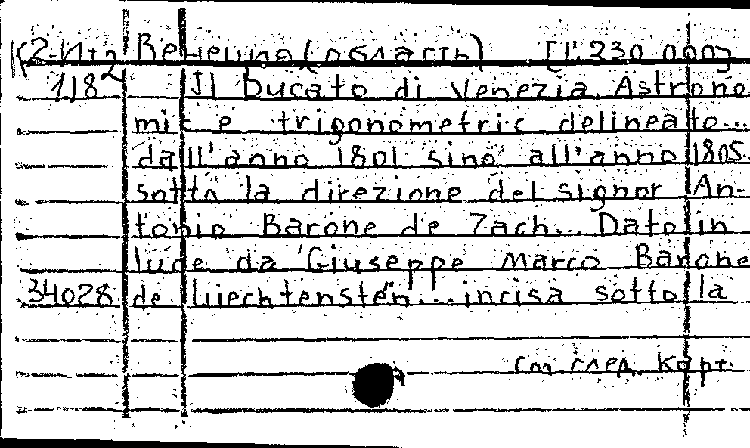 К2-Ит2 Венеция (область) [1:230 000]
1/82 Il Ducato di Venezia Astrono
mic e trigonometric delineato...
dall'anno 1801 sino all'anno 1805
sotto la direzione del signor An-
tonio Barone de Zach... Dato in
luce da Giuseppe Marco Barone
34028 de Liechtensten... incisa sotto la
см след. карт.